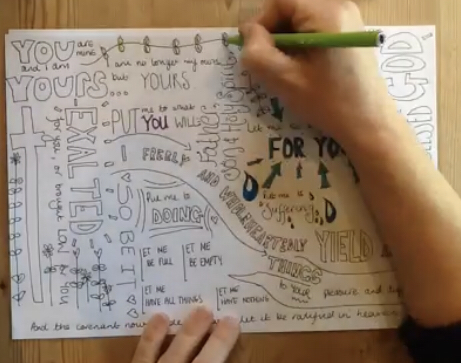 YOU are mine
and I am
YOURS
I am no longer my own
but YOURS
PUT me to what
YOU WILL
I FREELY
Father
Son & Holy Spirit
Let me
FOR YOU
GOD
EXALTED
for you, or brought LOW by YOU
SO BE IT
Put me to
DOING
Put me to
Suffering
AND WHOLEHEARTEDLY YIELD
THINGS
to your pleasure and
LET ME
BE FULL
LET ME
BE EMPTY
LET ME
HAVE ALL THINGS
LET ME
HAVE NOTHING
And the covenant now let it be ratified in heaven